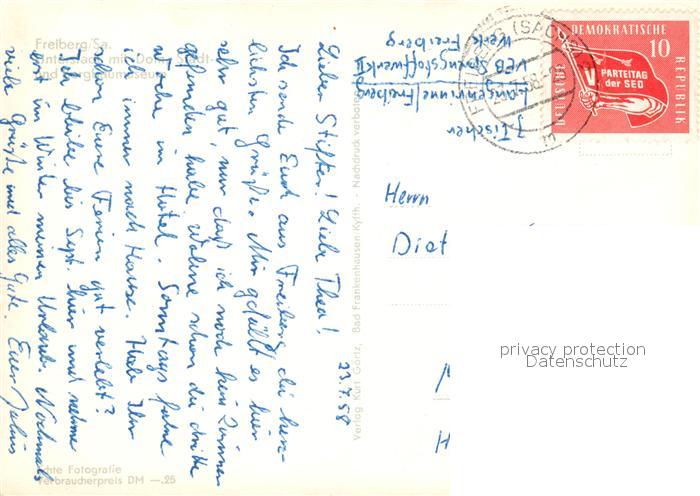 Freiberg/Sa.
Untermarkt mit Dom, Stadt-
und Bergbaumuseum
23.7.58
Lieber Stifter! Liebe Thea!
Ich sende Euch aus Freiberg die herz-
lichsten Grüße. Mir gefällt es hier
sehr gut, nur daß ich noch kein Zimmer
gefunden habe. Wohne schon die dritte
Woche im Hotel. Sonntags fahre
ich immer nach Hause. Habt Ihr
schon Eure Ferien gut verlebt?
Ich bleibe bis Sept. hier und nehme
erst im Winter meinen Urlaub. Nochmals
viele Grüße und alles Gute. Euer
Echte Fotografie
Verbraucherpreis DM —.25
Verlag Kurt Göritz, Bad Frankenhausen/Kyffh. - Nachdruck verboten
J. Tischer
Langenrinne/Freiberg
VEB Spurengstoffwerk II
Werk Freiberg
DEUTSCHE
DEMOKRATISCHE
REPUBLIK
10
PARTEITAG
der SED
Herrn
Diet
privacy protection
Datenschutz